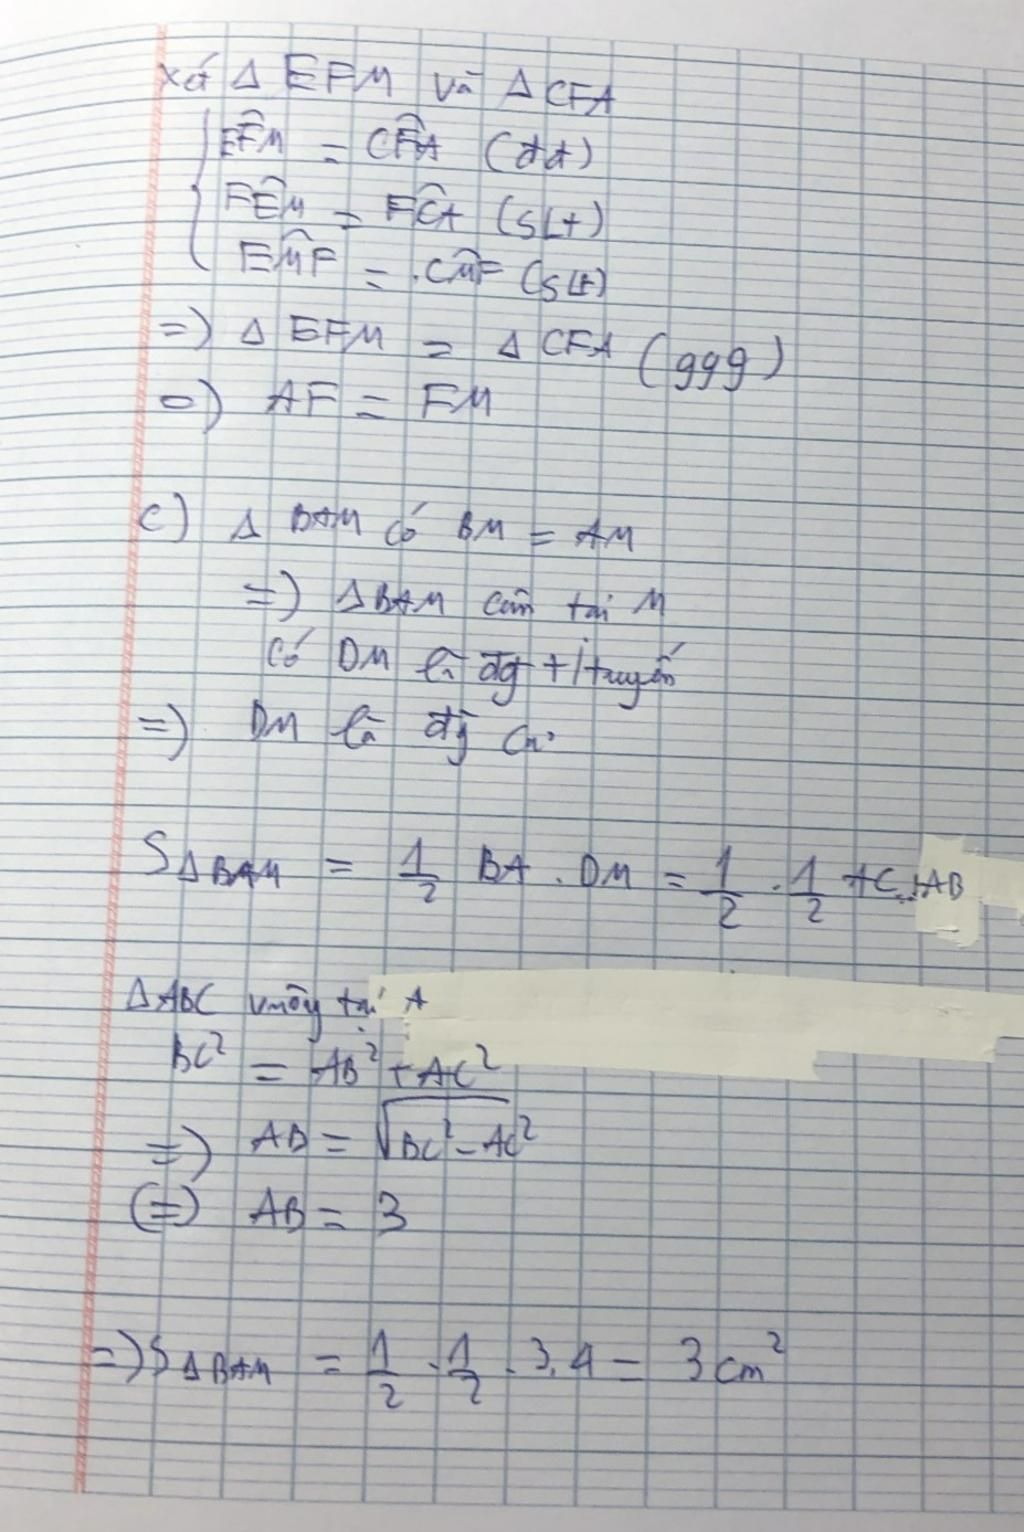 Xét Δ EFM và Δ CFA
EF̂M = CF̂A (đđ)
FÊM = FĈA (SLt)
EM̂F = CM̂F (SLt)
=) Δ EFM = Δ CFA (ggg)
=) AF = FM
c) Δ BAM có BM = AM
=) ΔBAM cân tại M
có DM là đg truyến
=) DM là đg cao
S ΔBAM = 1/2 BA . DM = 1/2 . 1/2 AC . AB
ΔABC vuông tại A
BC² = AB² + AC²
=) AB = √(BC² - AC²)
(=) AB = 3
=) S ΔBAM = 1/2 . 1/2 . 3.4 = 3 cm²